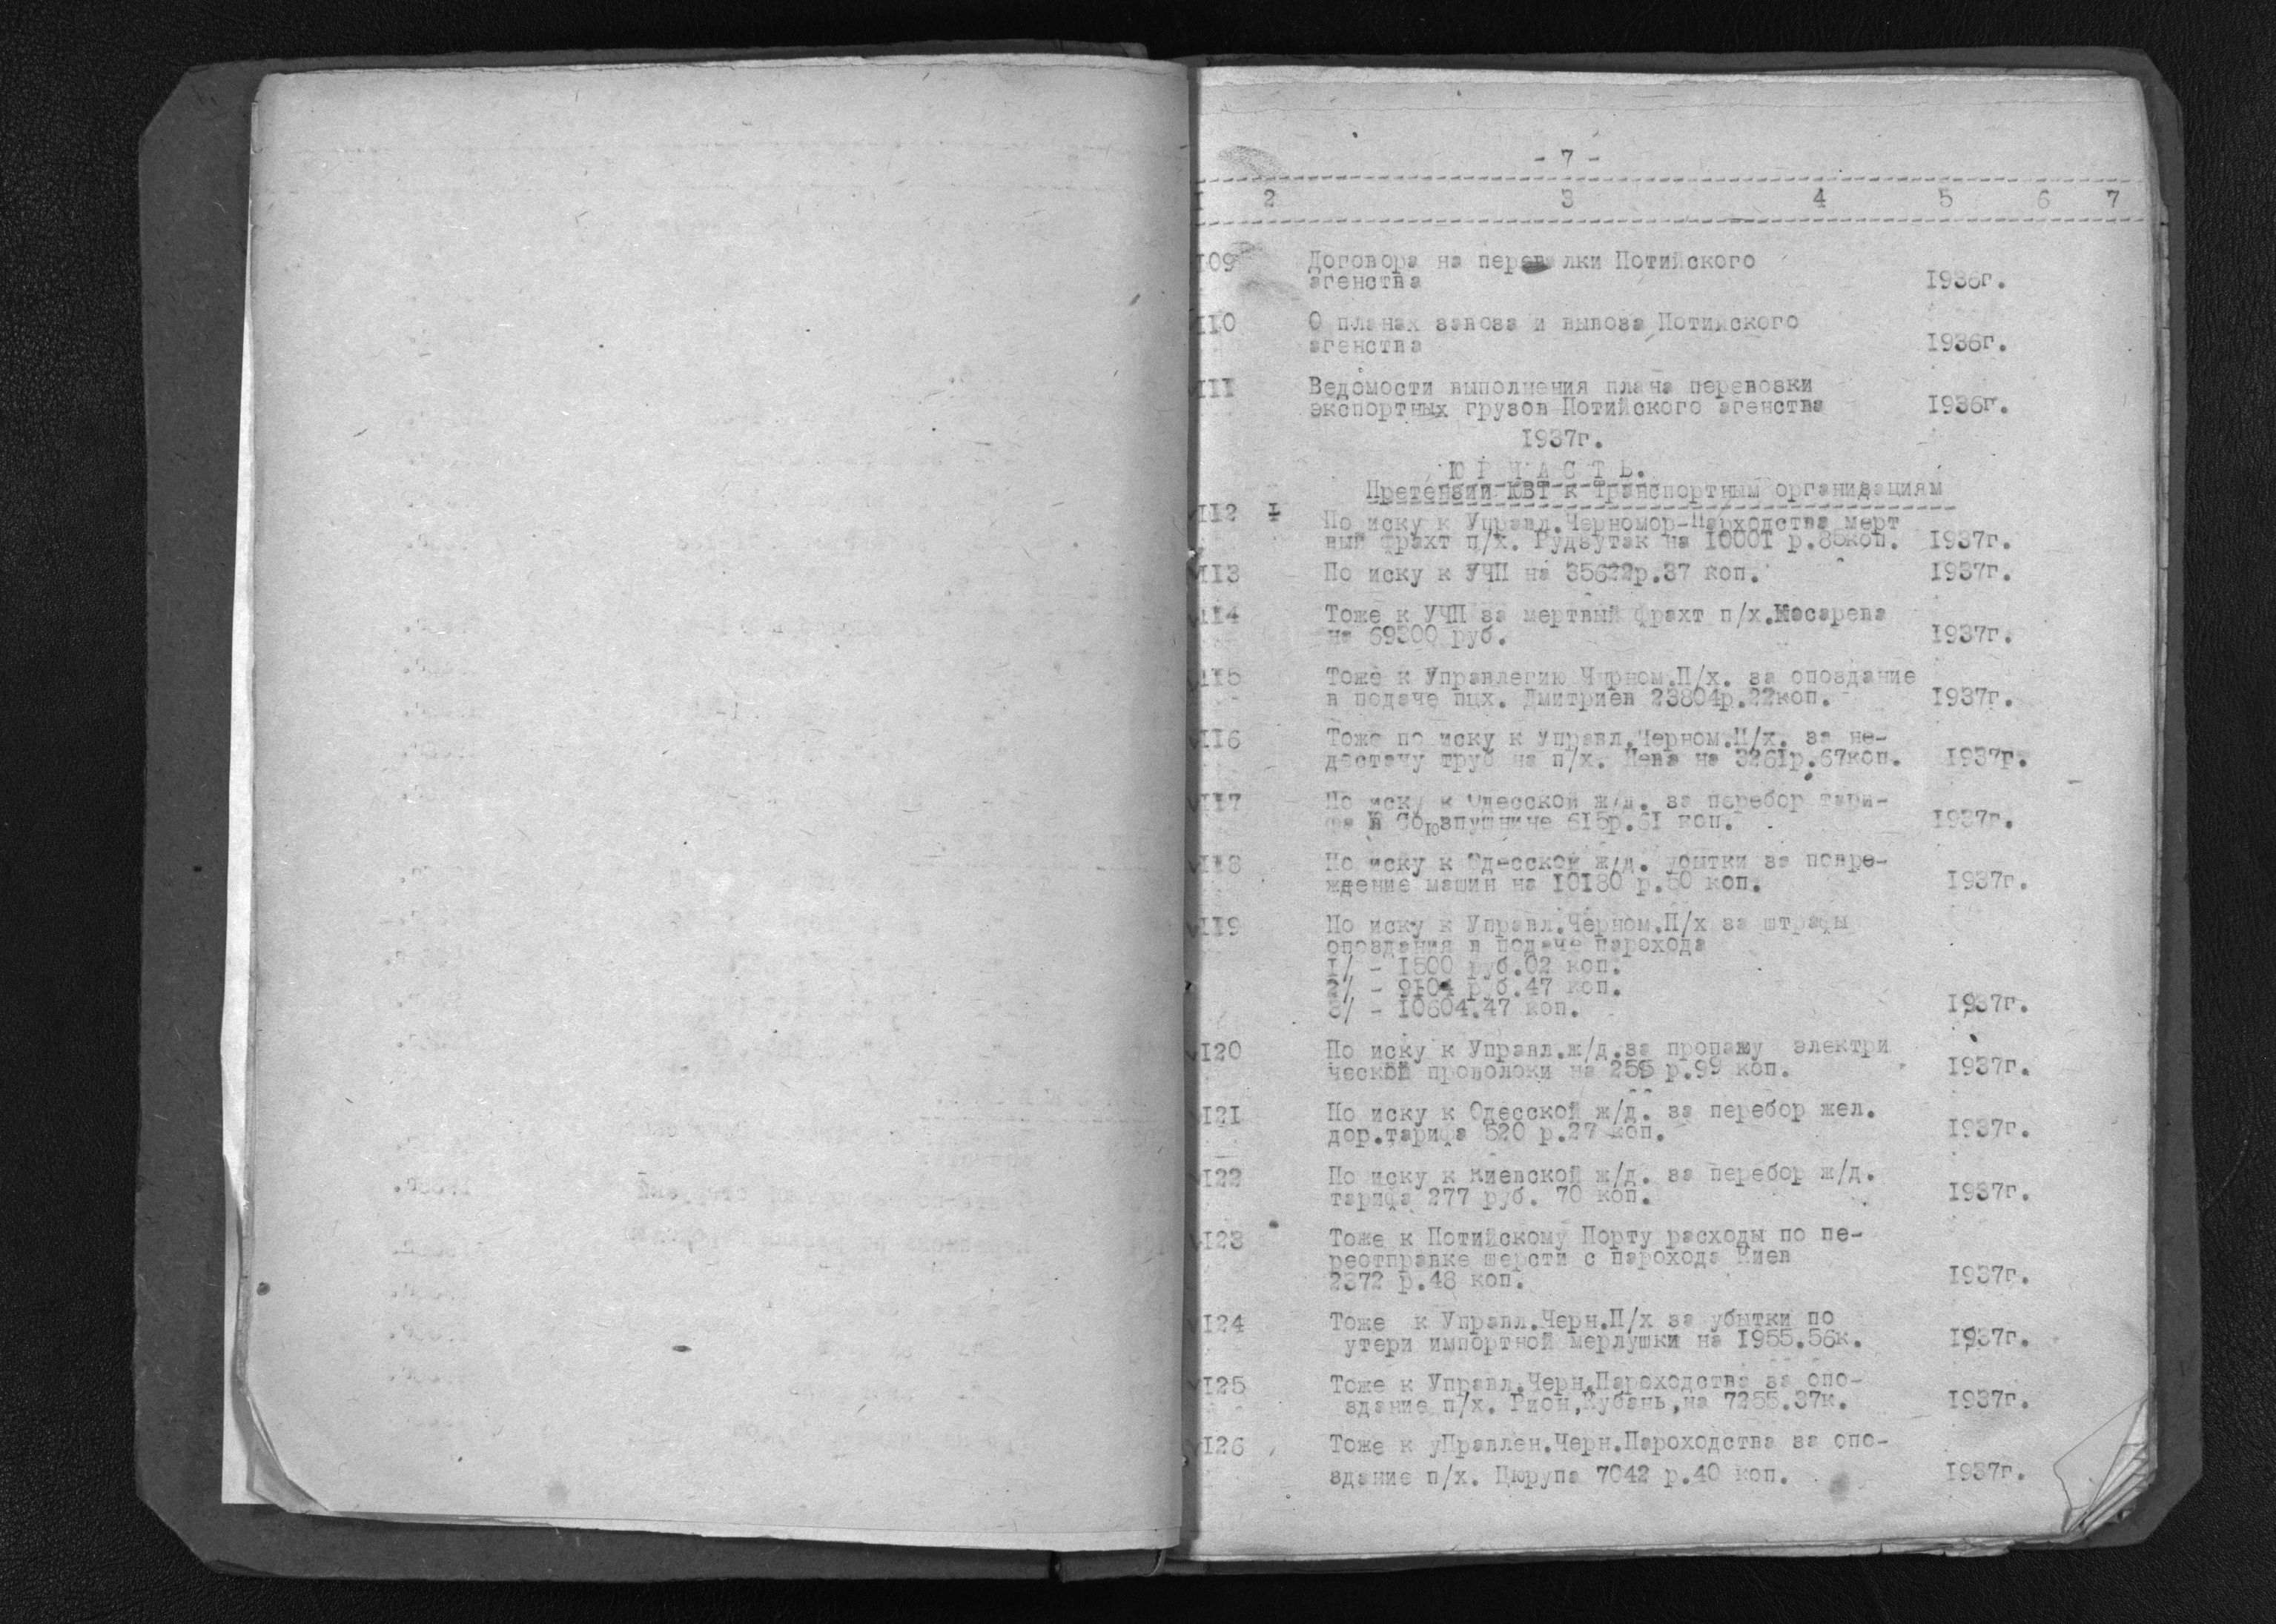 - 7 -
I 2 3 4 5 6 7
I09 Договора на перевалки Потийского
агенства I936г.
II0 О планах завоза и вывоза Потийского
агенства I936г.
III Ведомости выполнения плана перевозки
экспортных грузов Потийского агенства I936г.
I937г.
Ч А С Т Ь.
Претензии ЮВТ к транспортным организациям
II2 I По иску к Управл.Черномор-Пархоdства мерт
вый фрахт п/х. Рудзутак на I000I р.85коп. I937г.
II3 По иску к УЧП на 35622р.37 коп. I937г.
II4 Тоже к УЧП за мертвый фрахт п/х.
на 69300 руб. I937г.
II5 Тоже к Управлегию Чырном.П/х. за опоздание
в подаче пцх. Дмитриев 23804р.22коп. I937г.
II6 Тоже по иску к Управл.Черном.П/х. за не-
достачу труб на п/х. Нева на 326Iр.67коп. I937г.
II7 По иску к Одесской ж/д. за перебор тари-
фа В Союзпушнине 6I5р.6I коп. I937г.
II8 По иску к Одесской ж/д. убытки за повре-
ждение машин на I0I80 р.50 коп. I937г.
II9 По иску к Управл.Черном.П/х за штрафы
опоздания в подаче парохода
I/ - I500 руб.02 коп.
2/ - 9I04 руб.47 коп.
3/ - I0604.47 коп. I937г.
I20 По иску к Управл.ж/д.за пропажу электри
ческой проволоки на 255 р.99 коп. I937г.
I2I По иску к Одесской ж/д. за перебор жел.
дор.тарифа 520 р.27 коп. I937г.
I22 По иску к Киевской ж/д. за перебор ж/д.
тарифа 277 руб. 70 коп. I937г.
I23 Тоже к Потийскому Порту расходы по пе-
реотправке шерсти с парохода Киев
2372 р.48 коп. I937г.
I24 Тоже к Управл.Черн.П/х за убытки по
утери импортной мерлушки на I955.56к. I937г.
I25 Тоже к Управл.Черн.Пароходства за опо-
здание п/х. Рион,Кубань,на 7255.37к. I937г.
I26 Тоже к уПравлен.Черн.Пароходства за опо-
здание п/х. Цюрупа 7042 р.40 коп. I937г.